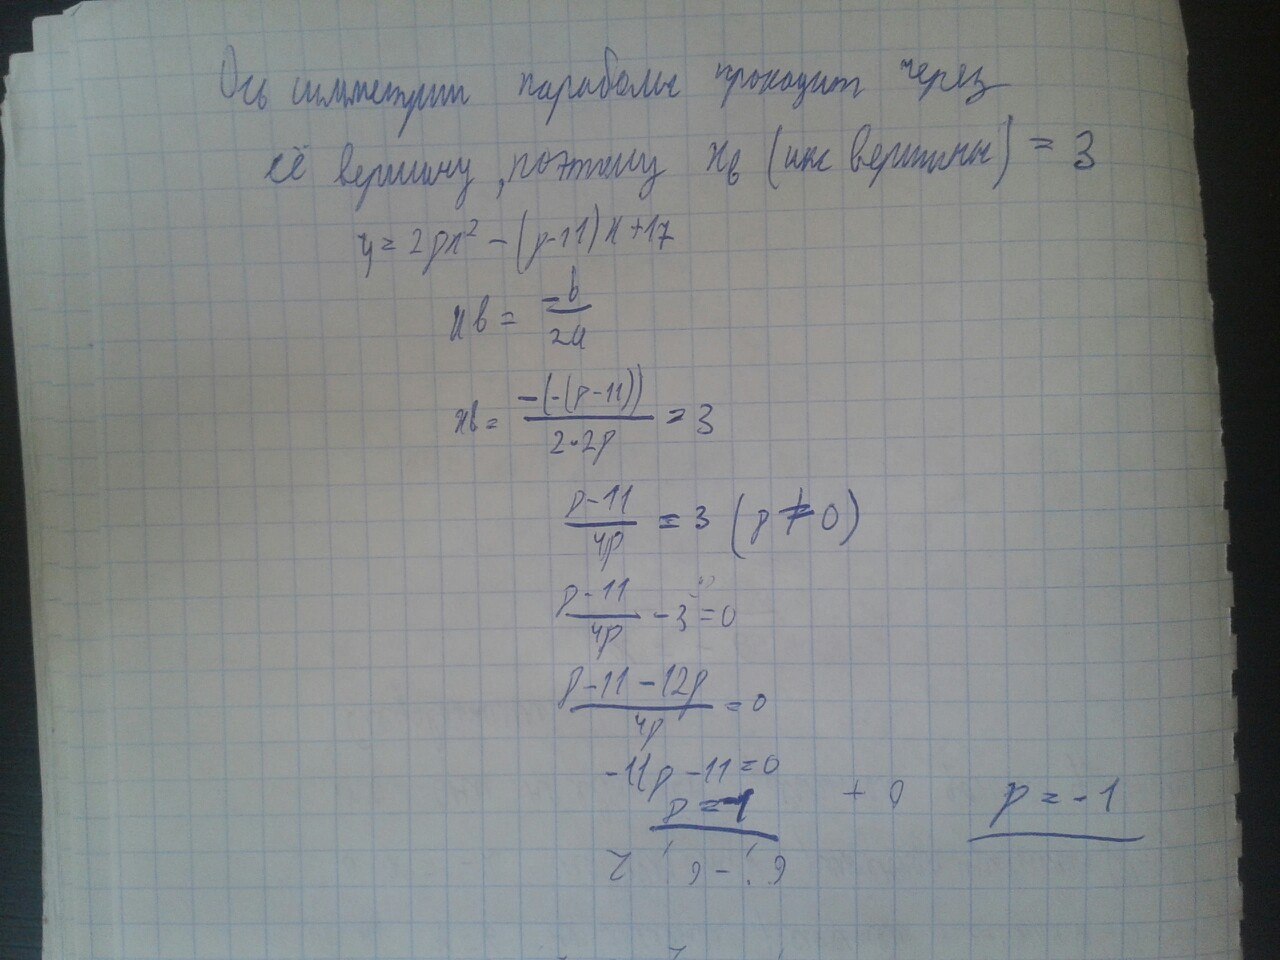 Ось симметрии параболы проходит через
её вершину, поэтому xв (икс вершины) = 3
y = 2px² - (p-11)x + 17
xв = -b/2a
xв = -(-(p-11))/2·2p = 3
p-11/4p = 3 (p ≠ 0)
p-11/4p - 3 = 0
p-11-12p/4p = 0
-11p - 11 = 0
p = -1
p = -1